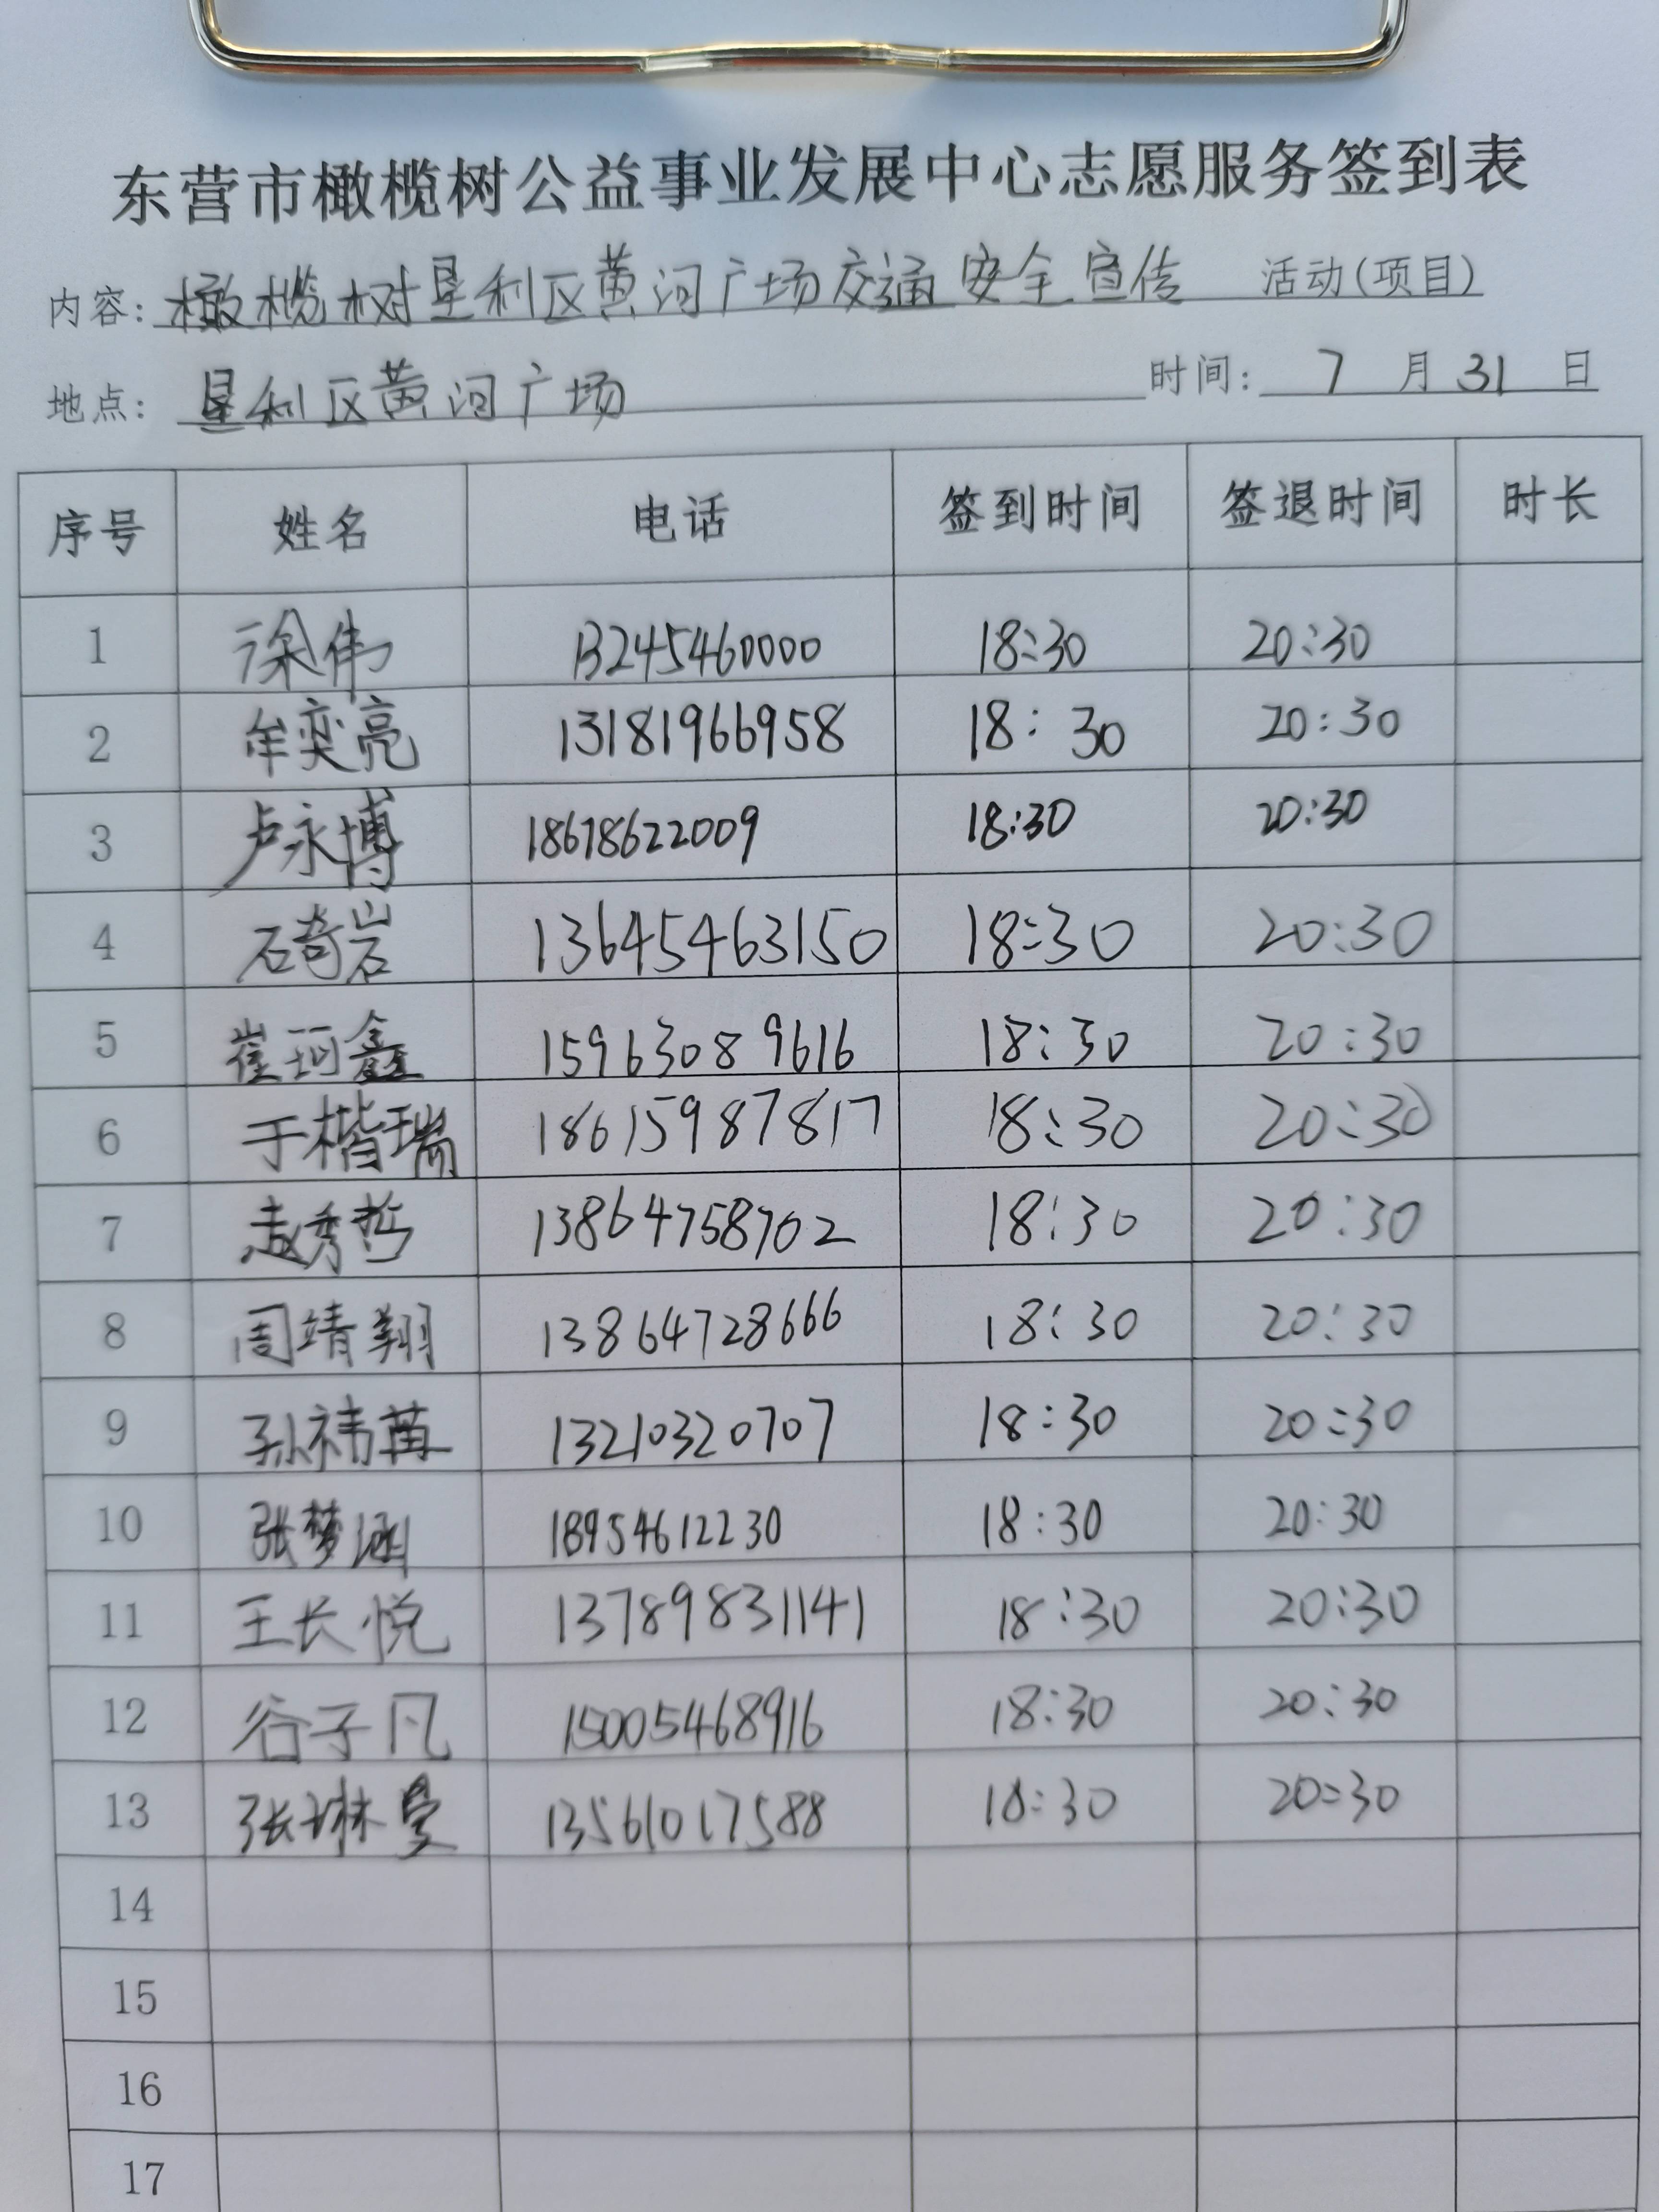 东营市橄榄树公益事业发展中心志愿服务签到表
内容: 橄榄树垦利区黄河广场交通安全宣传 活动(项目)
地点: 垦利区黄河广场 时间: 7 月 31 日
序号 姓名 电话 签到时间 签退时间 时长
1 徐伟 13245460000 18:30 20:30
2 牟奕亮 13181966958 18:30 20:30
3 卢永博 18678622009 18:30 20:30
4 石奇岩 13645463150 18:30 20:30
5 崔珂鑫 15963089616 18:30 20:30
6 于楷瑞 18615987817 18:30 20:30
7 赵秀哲 13864758702 18:30 20:30
8 周靖翔 13864728666 18:30 20:30
9 孙祎苒 13210320707 18:30 20:30
10 张梦涵 18954612230 18:30 20:30
11 王长悦 13789831141 18:30 20:30
12 谷子凡 15005468916 18:30 20:30
13 张琳曼 13561017588 18:30 20:30
14
15
16
17